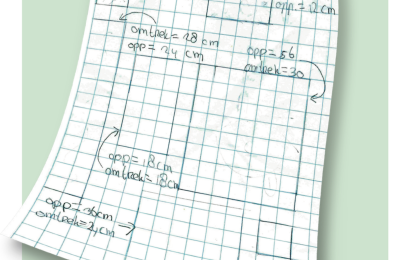 opp.= 12 cm
omtrek= 28 cm
opp= 24 cm
opp= 56
omtrek= 30
opp= 18 cm
omtrek= 18cm
opp= 36cm
omtrek= 2, cm